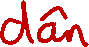 dân